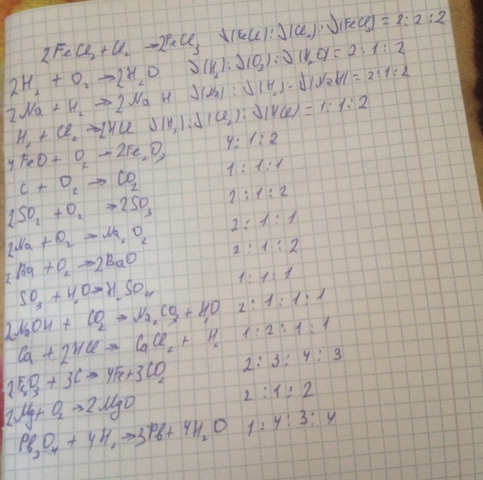 2FeCl₂ + Cl₂ → 2FeCl₃ J(FeCl) : J(Cl₂) : J(FeCl₃) = 2 : 2 : 2
2H₂ + O₂ → 2H₂O J(H₂) : J(O₂) : J(H₂O) = 2 : 1 : 2
2Na + H₂ → 2NaH J(Na) : J(H₂) : J(NaH) = 2 : 1 : 2
H₂ + Cl₂ → 2HCl J(H₂) : J(Cl₂) : J(HCl) = 1 : 1 : 2
4FeO + O₂ → 2Fe₂O₃ 4 : 1 : 2
C + O₂ → CO₂ 1 : 1 : 1
2SO₂ + O₂ → 2SO₃ 2 : 1 : 2
2Na + O₂ → Na₂O₂ 2 : 1 : 1
2Ba + O₂ → 2BaO 2 : 1 : 2
SO₃ + H₂O → H₂SO₄ 1 : 1 : 1
2NaOH + CO₂ → Na₂CO₃ + H₂O 2 : 1 : 1 : 1
Ca + 2HCl → CaCl₂ + H₂ 1 : 2 : 1 : 1
2Fe₂O₃ + 3C → 4Fe + 3CO₂ 2 : 3 : 4 : 3
2Mg + O₂ → 2MgO 2 : 1 : 2
Pb₃O₄ + 4H₂ → 3Pb + 4H₂O 1 : 4 : 3 : 4